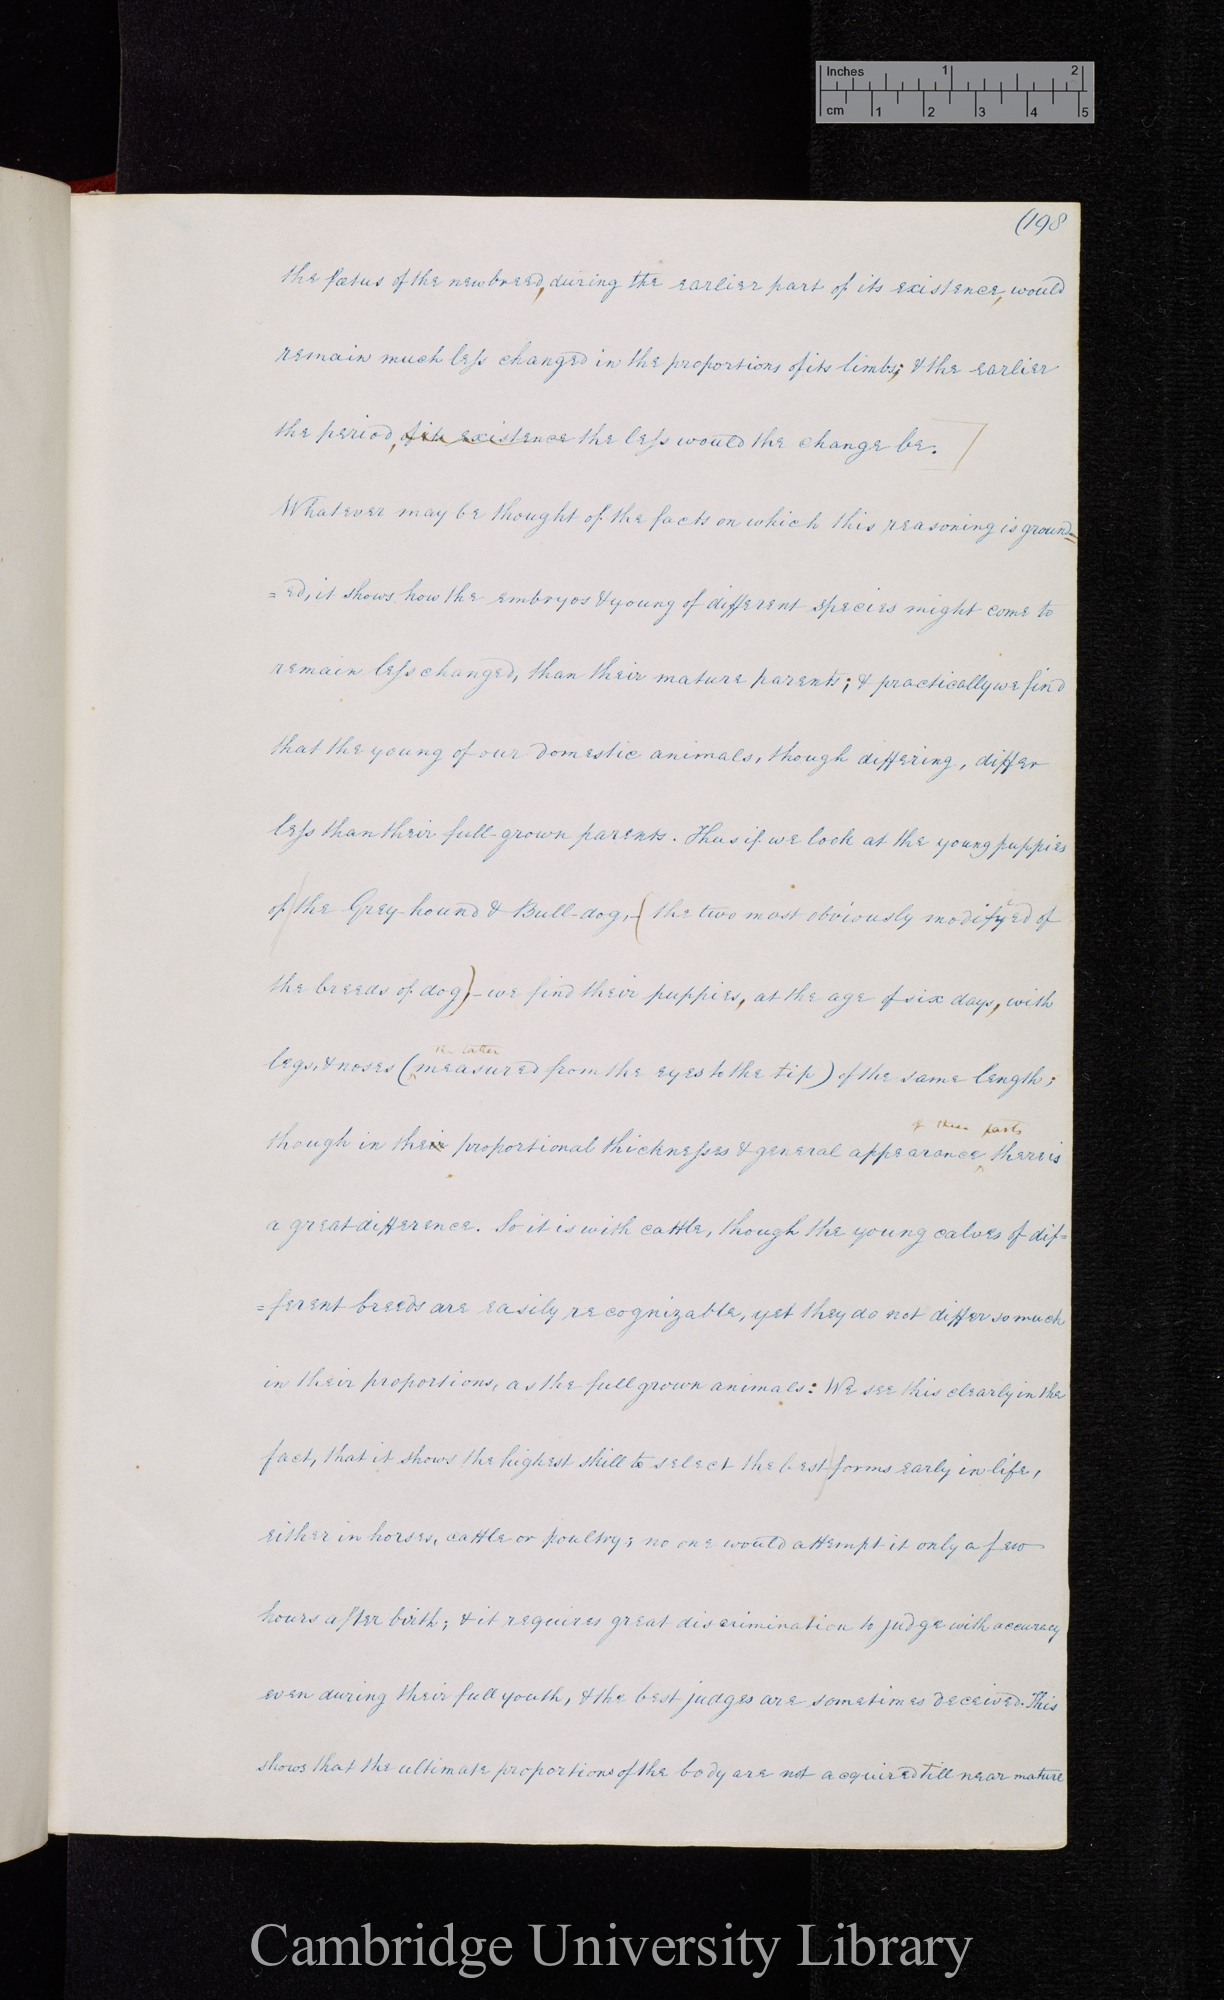 Inches 1 2
cm 1 2 3 4 5
(198
the fœtus of the new breed, during the earlier part of its existence, would
remain much less changed in the proportions of its limbs; & the earlier
the period, of its existence the less would the change be.]
Whatever may be thought of the facts on which this reasoning is ground=
=ed, it shows how the embryos & young of different species might come to
remain less changed, than their mature parents; & practically we find
that the young of our domestic animals, though differing, differ
less than their full-grown parents. Thus if we look at the young puppies
of the Grey-hound & Bull-dog,-(the two most obviously modifyed of
the breeds of dog)-we find their puppies, at the age of six days, with
the latter
legs, & noses (measured from the eyes to the tip) of the same length;
of these parts
though in their proportional thicknesses & general appearance there is
a great difference. So it is with cattle, though the young calves of dif=
=ferent breeds are easily recognizable, yet they do not differ so much
in their proportions, as the full grown animals: We see this clearly in the
fact, that it shows the highest skill to select the best forms early in life,
either in horses, cattle or poultry; no one would attempt it only a few
hours after birth; & it requires great discrimination to judge with accuracy
even during their full youth, & the best judges are sometimes deceived. This
shows that the ultimate proportions of the body are not acquired till near mature
Cambridge University Library